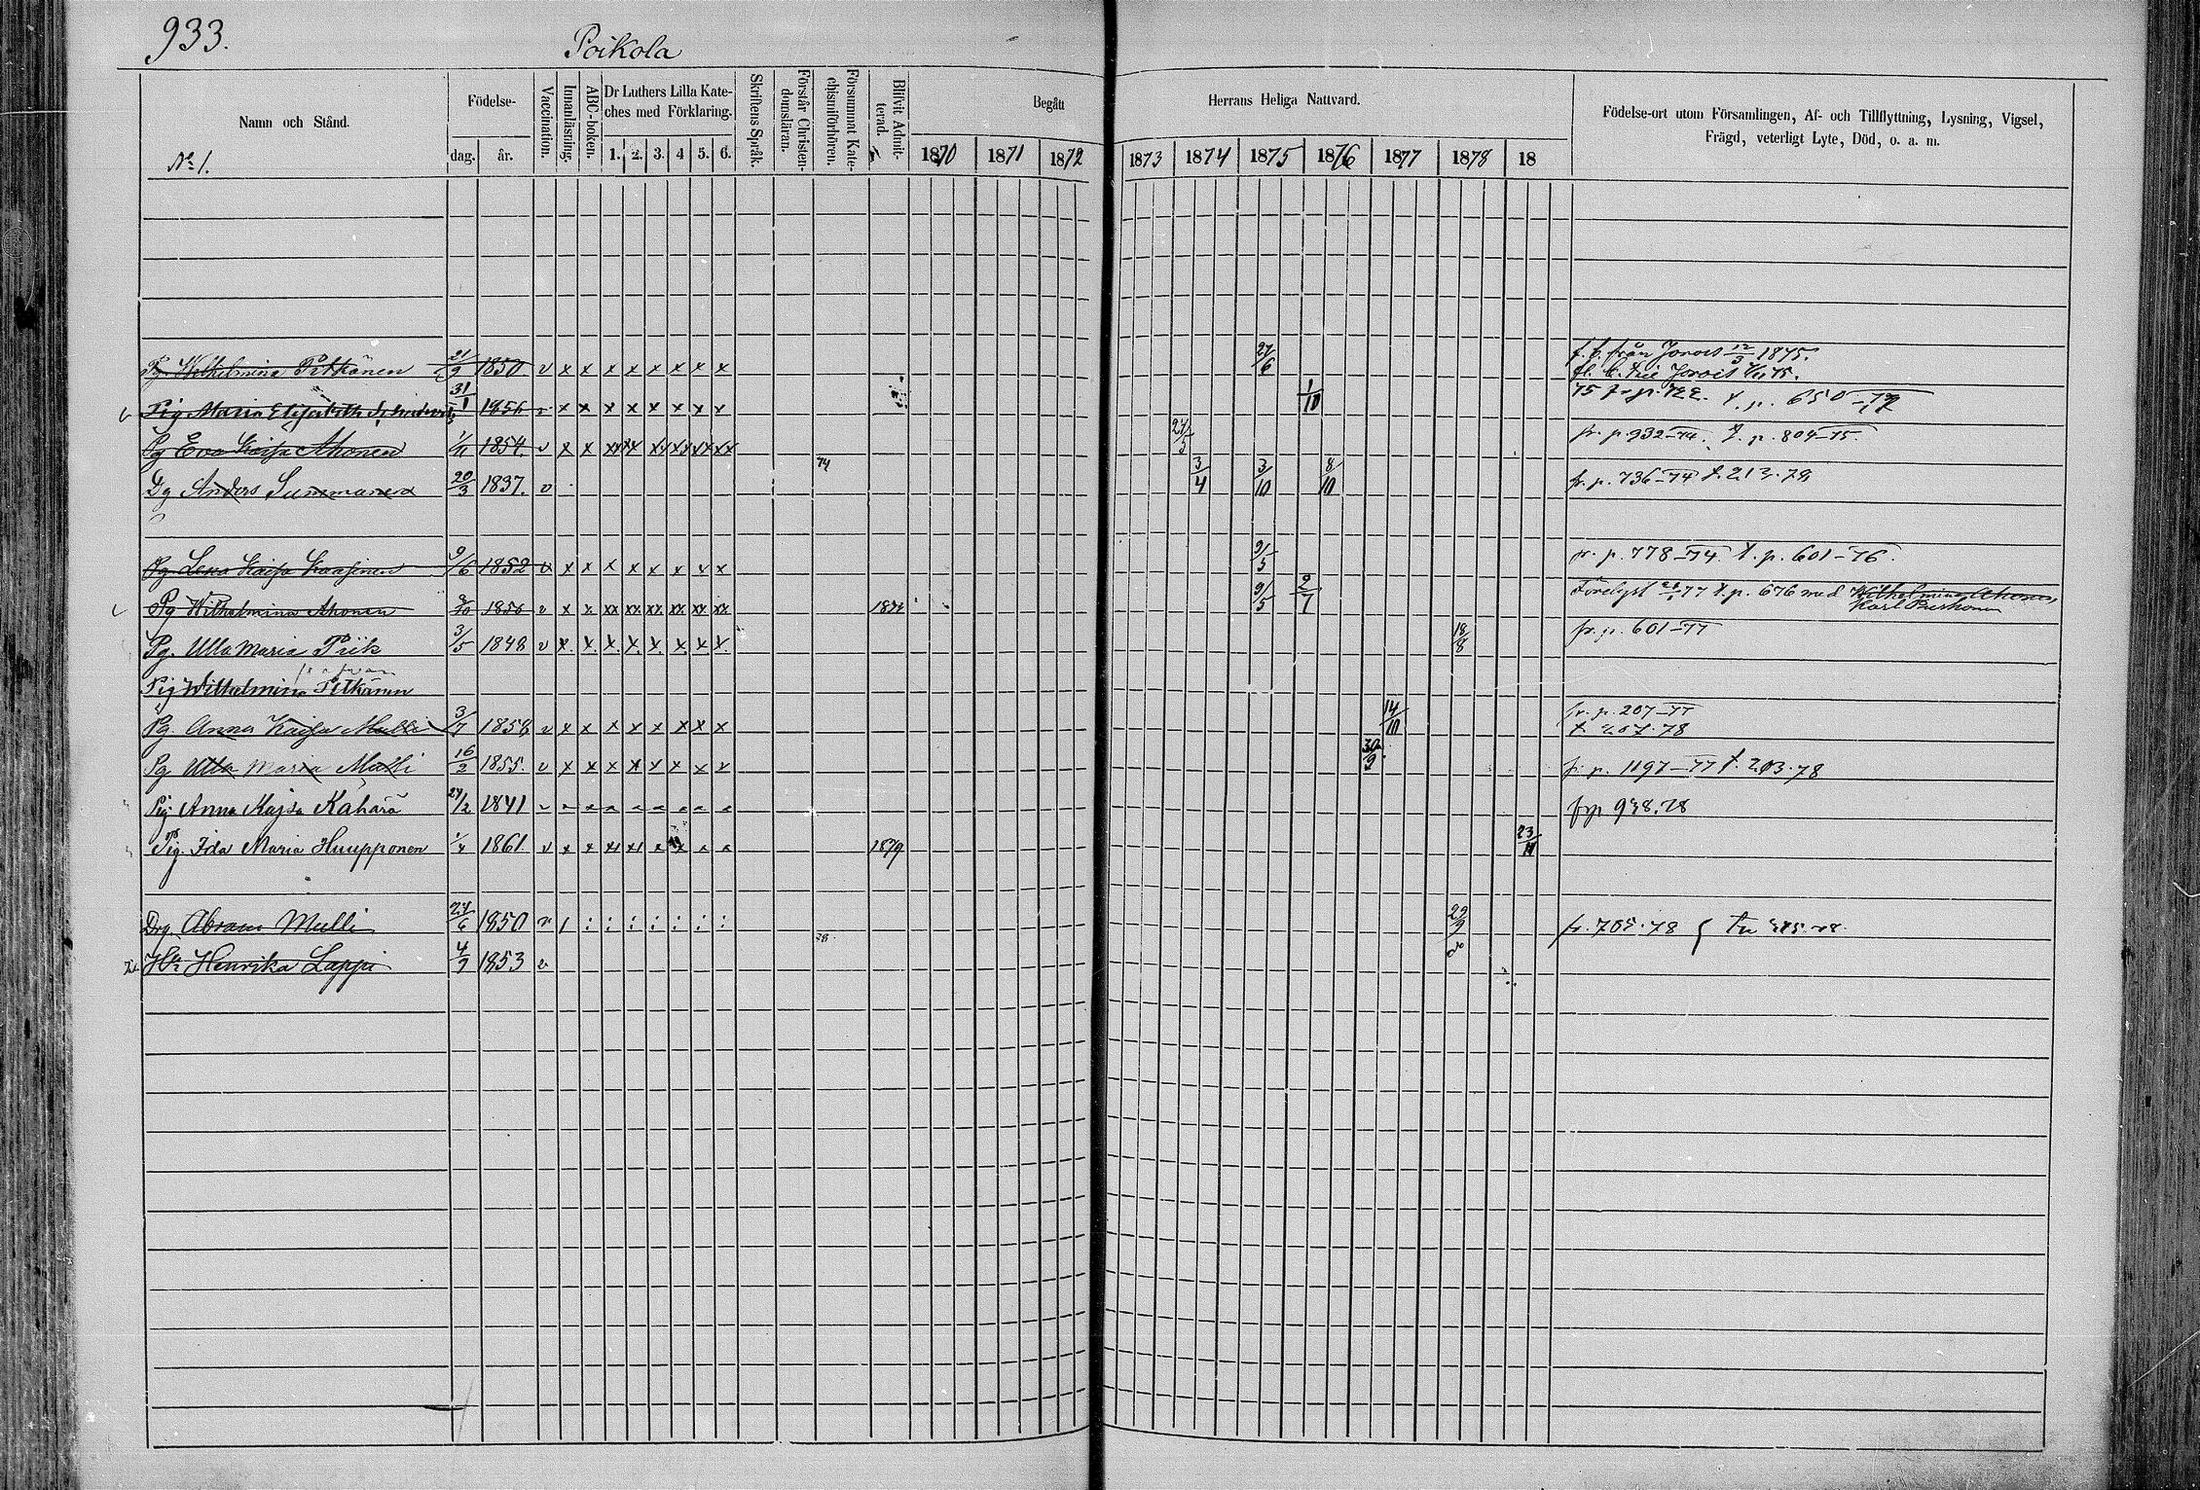 933.
Poikola
Namn och Stånd.
No 1.
Födelse-
dag.
år.
Vaccination.
Innanläsning.
ABC-boken.
Dr Luthers Lilla Kate-
ches med Förklaring.
1. 2. 3. 4 5. 6.
Skriftens Språk.
Förstår Christen-
domsläran.
Försummat Kate-
chismiförhören.
Blifvit Admit-
terad.
Begått
Herrans Heliga Nattvard.
1870 1871 1872 1873 1874 1875 1876 1877 1878 18
Födelse-ort utom Församlingen, Af- och Tillflyttning, Lysning, Vigsel,
Frägd, veterligt Lyte, Död, o. a. m.
Pg. Wilhelmina Pitkänen 21/9 1850 v x x x x x x x x 27/6 f. b. från Jorois 12/3 1875.
Jorois
Pig Maria Elisabeth 31/1 1856 v x x x x x x x x 1/10 p. 650
Pg Eva Kaisa Ahonen 1/11 1854. v x x xx xx xx xx xx xx 27/5 fr. p. 932-74. t. p. 804-75.
Dg Anders Summanen 20/3 1837. v 74 3/4 3/10 8/10 fr. p. 736-74 t. 213. 79
Pg. Lena Kaisa 9/6 1852 v x x x x x x x x 9/5 fr. p. 778-74. t. p. 601-76.
Pg Wilhelmina Ahonen 1856 v x x xx xx xx xx xx xx 9/5 2/7 t. p. 676 med Wilhelmina Ahonen,
Karl
Pg. Ulla Maria Piik 3/5 1848 v x x x x x x x x 18/8 fr. p. 601-77
Pig Wilhelmina Pitkänen
Pg. Anna Kaisa Mulli 3/7 1858 v x x x x x x x x 14/10 fr. p. 207-77
78
Pg Ulla Maria Mulli 16/2 1855. v x x x x x x x x 30/9 fr. p. 1197-77 t. 203. 78
Pig Anna Kajsa Kähärä 27/2 1841 78
Pig. Ida Maria Huupponen 1/4 1861 v x x 1879 23/11
Drg. Abram Mulli 24/6 1850 v 29/9 fr. 705. 78
Henrika Lappi 4/9 1853 v 78